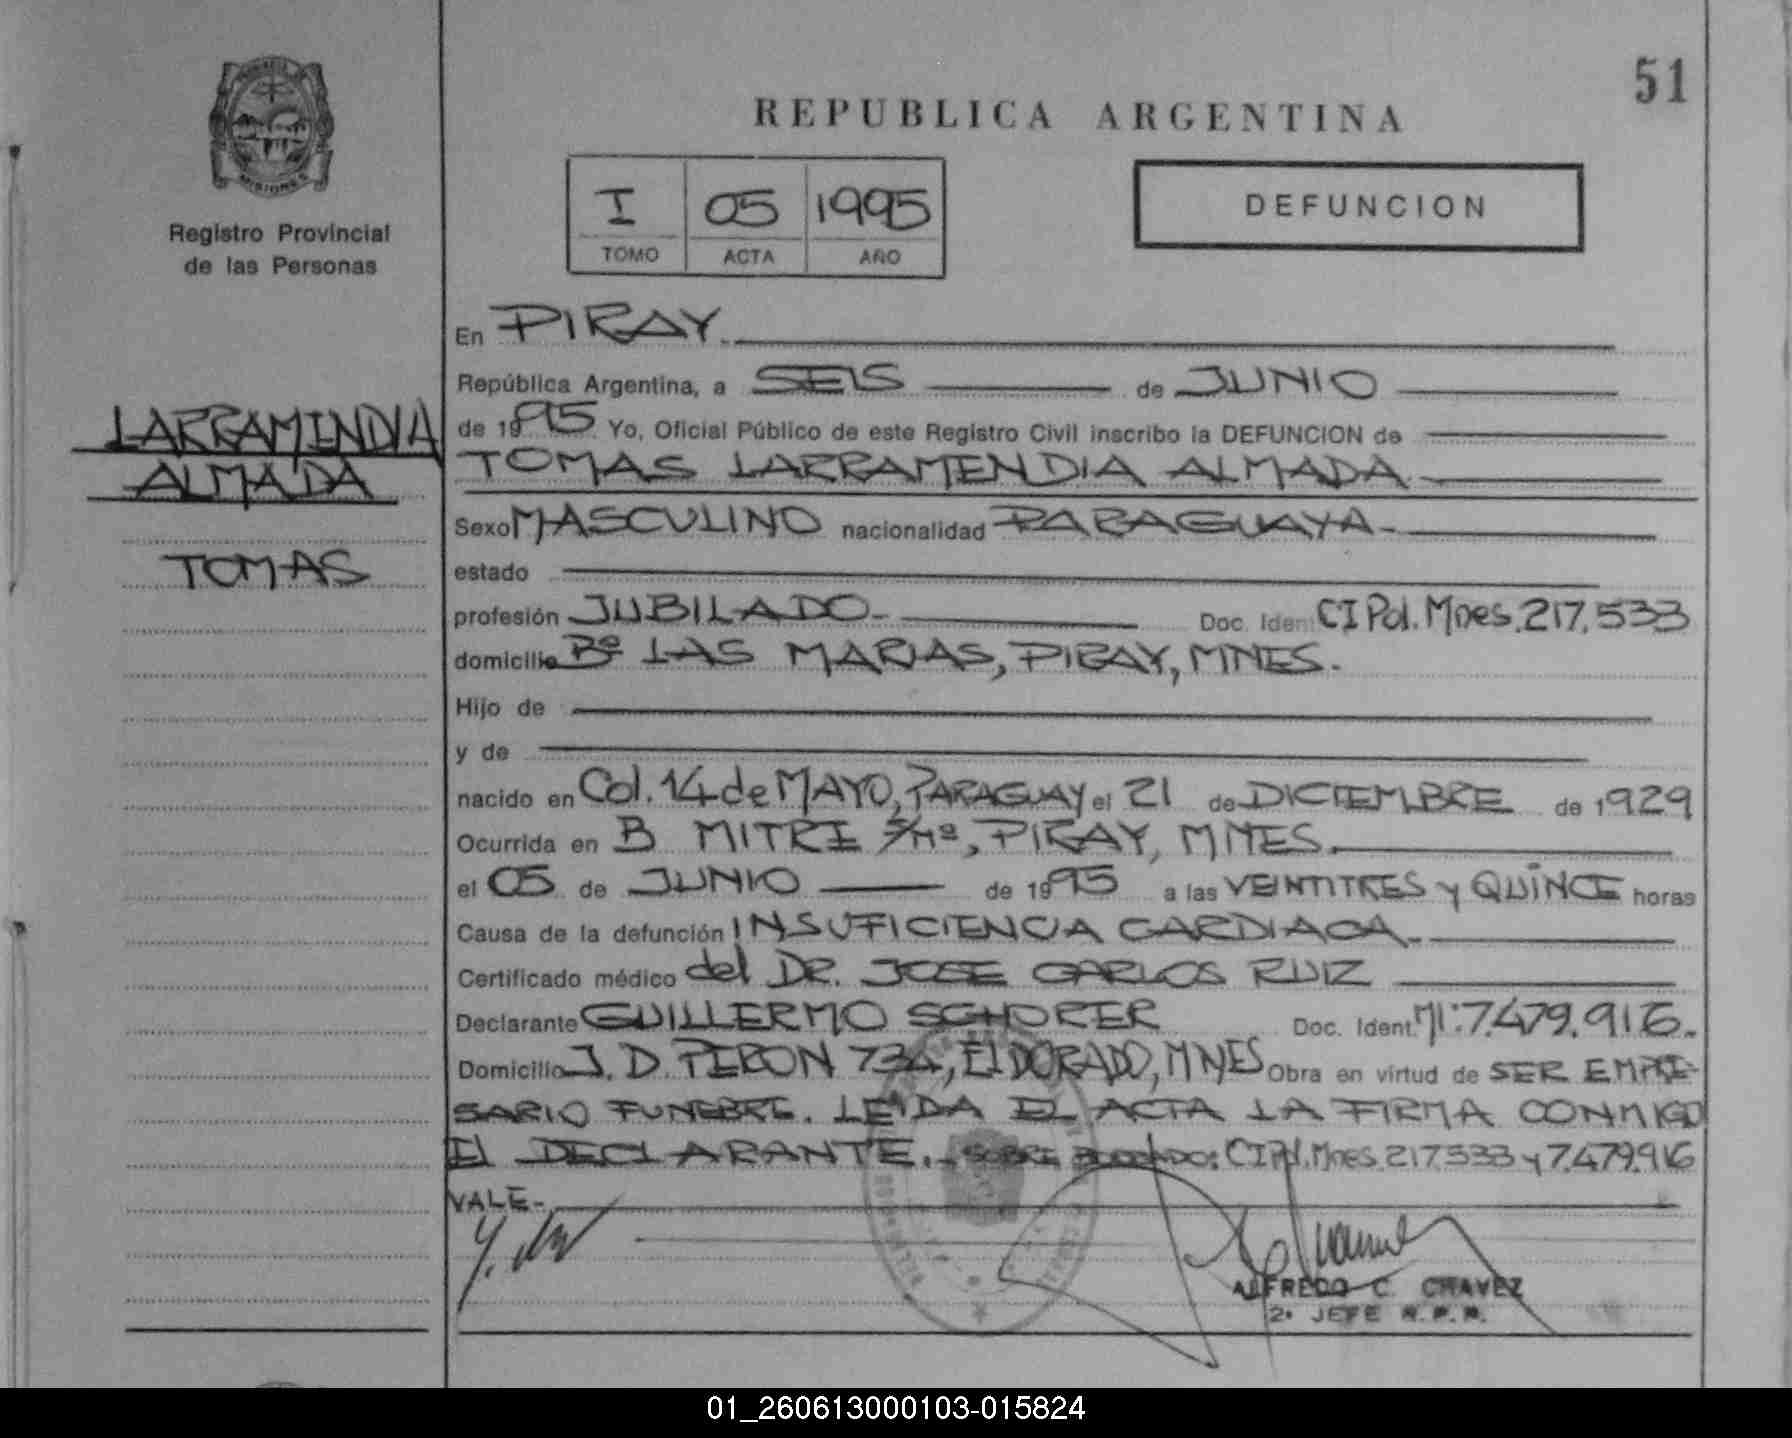 51
REPUBLICA ARGENTINA
MISIONES
Registro Provincial
de las Personas
I 05 1995
TOMO ACTA AÑO
DEFUNCION
LARRAMENDIA
ALMADA
TOMAS
En PIRAY.
República Argentina, a SEIS de JUNIO
de 1995 Yo, Oficial Público de este Registro Civil inscribo la DEFUNCION de
TOMAS LARRAMENDIA ALMADA
Sexo MASCULINO nacionalidad PARAGUAYA-
estado
profesión JUBILADO- Doc. Ident. CI Pol. Mnes. 217.533
domicilio Bº LAS MARIAS, PIRAY, MNES.
Hijo de
y de
nacido en Col. 14 de MAYO, PARAGUAY el 21 de DICIEMBRE de 1929
Ocurrida en B MITRE S/Nº, PIRAY, MNES.
el 05 de JUNIO de 1995 a las VEINTITRES y QUINCE horas
Causa de la defunción INSUFICIENCIA CARDIACA-
Certificado médico del DR. JOSE CARLOS RUIZ
Declarante GUILLERMO SCHORER Doc. Ident. MI: 7.479.916.
Domicilio J. D. PERON 734, ELDORADO, MNES Obra en virtud de SER EMPRE-
SARIO FUNEBRE. LEIDA EL ACTA LA FIRMA CONMIGO
El DECLARANTE. SOBRE BORRADO: CI Pol. Mnes. 217.533 y 7.479.916
VALE-
ALFREDO C. CHAVEZ
2º JEFE R.P.P.
01_260613000103-015824